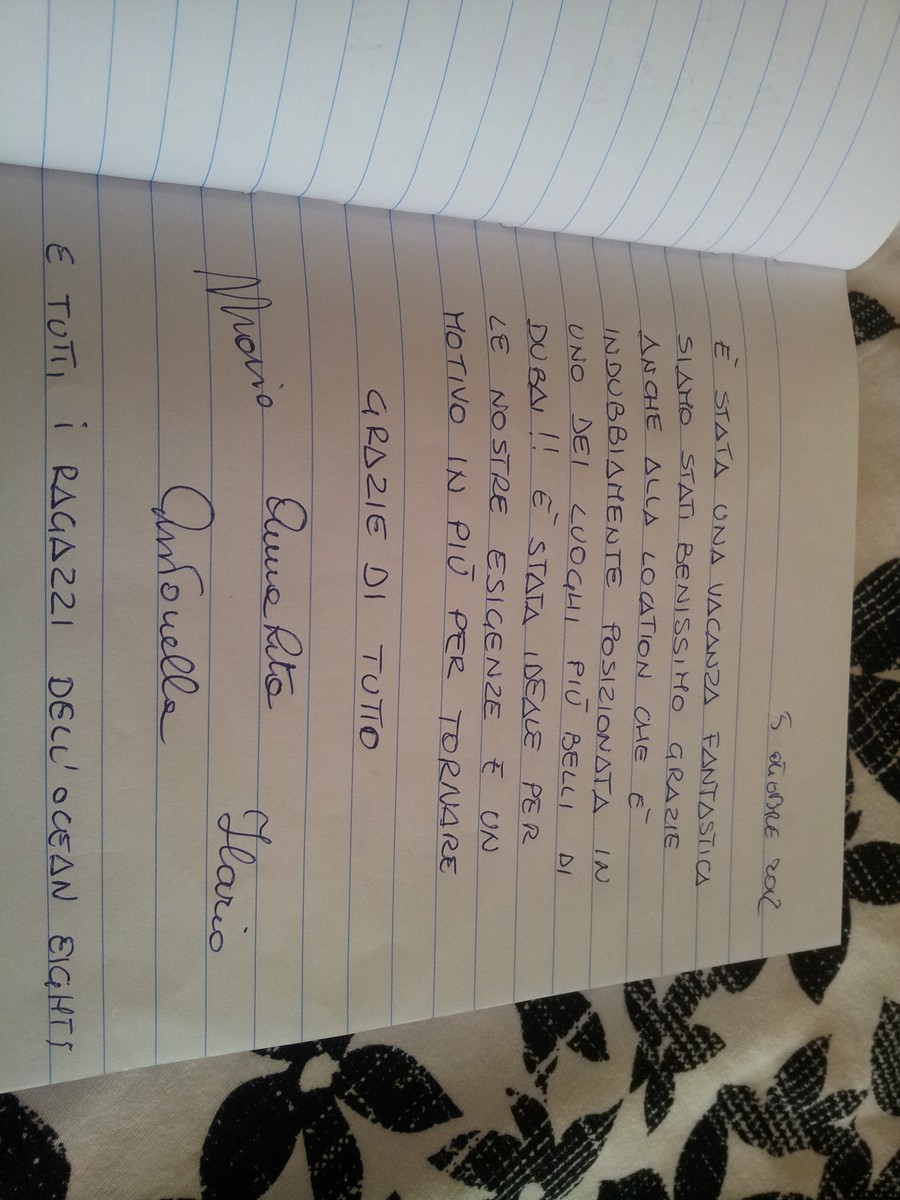 5 OTTOBRE 2012
È STATA UNA VACANZA FANTASTICA
SIAMO STATI BENISSIMO GRAZIE
ANCHE ALLA LOCATION CHE È
INDUBBIAMENTE POSIZIONATA IN
UNO DEI LUOGHI PIÙ BELLI DI
DUBAI!! È STATA IDEALE PER
LE NOSTRE ESIGENZE E UN
MOTIVO IN PIÙ PER TORNARE
GRAZIE DI TUTTO
Anna Rita
Mario Ilario
Antonella
E TUTTI I RAGAZZI DELL'OCEAN EIGHTS